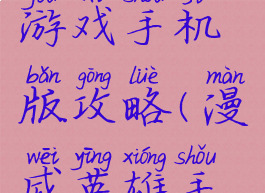 游戏手机
bǎn gōng lüè màn
版攻略(漫
wēi yīng xióng shǒu
威英雄手